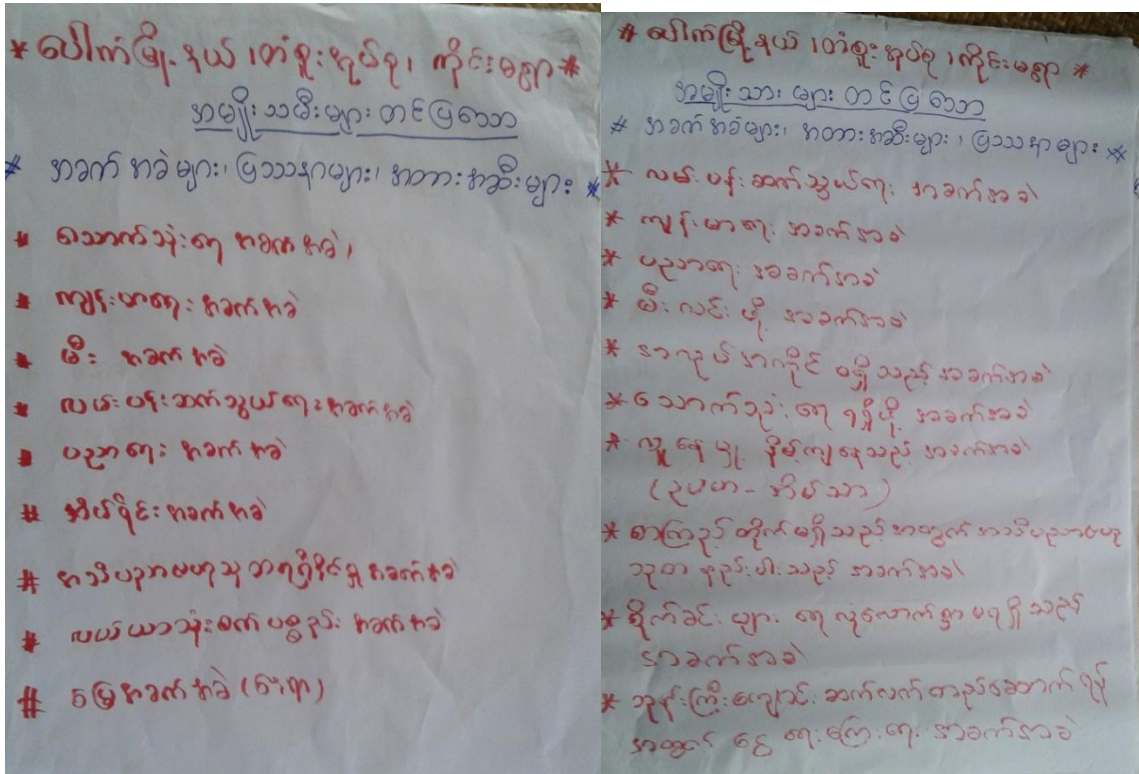 * ပေါက်မြို့နယ်၊ တံစူးအုပ်စု၊ ကိုင်းမရွာ *
အမျိုးသမီးများ တင်ပြသော
* အခက်အခဲများ၊ ပြဿနာများ၊ အတားအဆီးများ *
* သောက်သုံးရေ အခက်အခဲ၊
* ကျန်းမာရေး အခက်အခဲ
* မီး အခက်အခဲ
* လမ်းပန်းဆက်သွယ်ရေး အခက်အခဲ
* ပညာရေး အခက်အခဲ
* အခက်အခဲ
* အသိပညာဗဟုသုတရရှိနိုင်မှု အခက်အခဲ
* လယ်ယာသုံးစက်ပစ္စည်း အခက်အခဲ
* မြေအခက်အခဲ
* ပေါက်မြို့နယ်၊ တံစူးအုပ်စု၊ ကိုင်းမရွာ *
အမျိုးသားများ တင်ပြသော
* အခက်အခဲများ၊ အတားအဆီးများ၊ ပြဿနာများ *
* လမ်းပန်းဆက်သွယ်ရေး အခက်အခဲ
* ကျန်းမာရေး အခက်အခဲ
* ပညာရေး အခက်အခဲ
* မီးလင်းဖို့ အခက်အခဲ
* အခက်အခဲ
* သောက်သုံးရေရရှိဖို့ အခက်အခဲ
* လူနေမှု နိမ့်ကျနေသည့် အခက်အခဲ
(ဥပမာ - အိမ်သာ)
* စာကြည့်တိုက်မရှိသည့်အတွက် အသိပညာဗဟု
သုတ နည်းပါးသည့် အခက်အခဲ
* စိုက်ခင်းများ ရေလုံလောက်စွာ မရရှိသည့်
အခက်အခဲ
* ဘုန်းကြီးကျောင်း ဆက်လက်တည်ဆောက်ရန်
အတွက် ငွေရေးကြေးရေး အခက်အခဲ